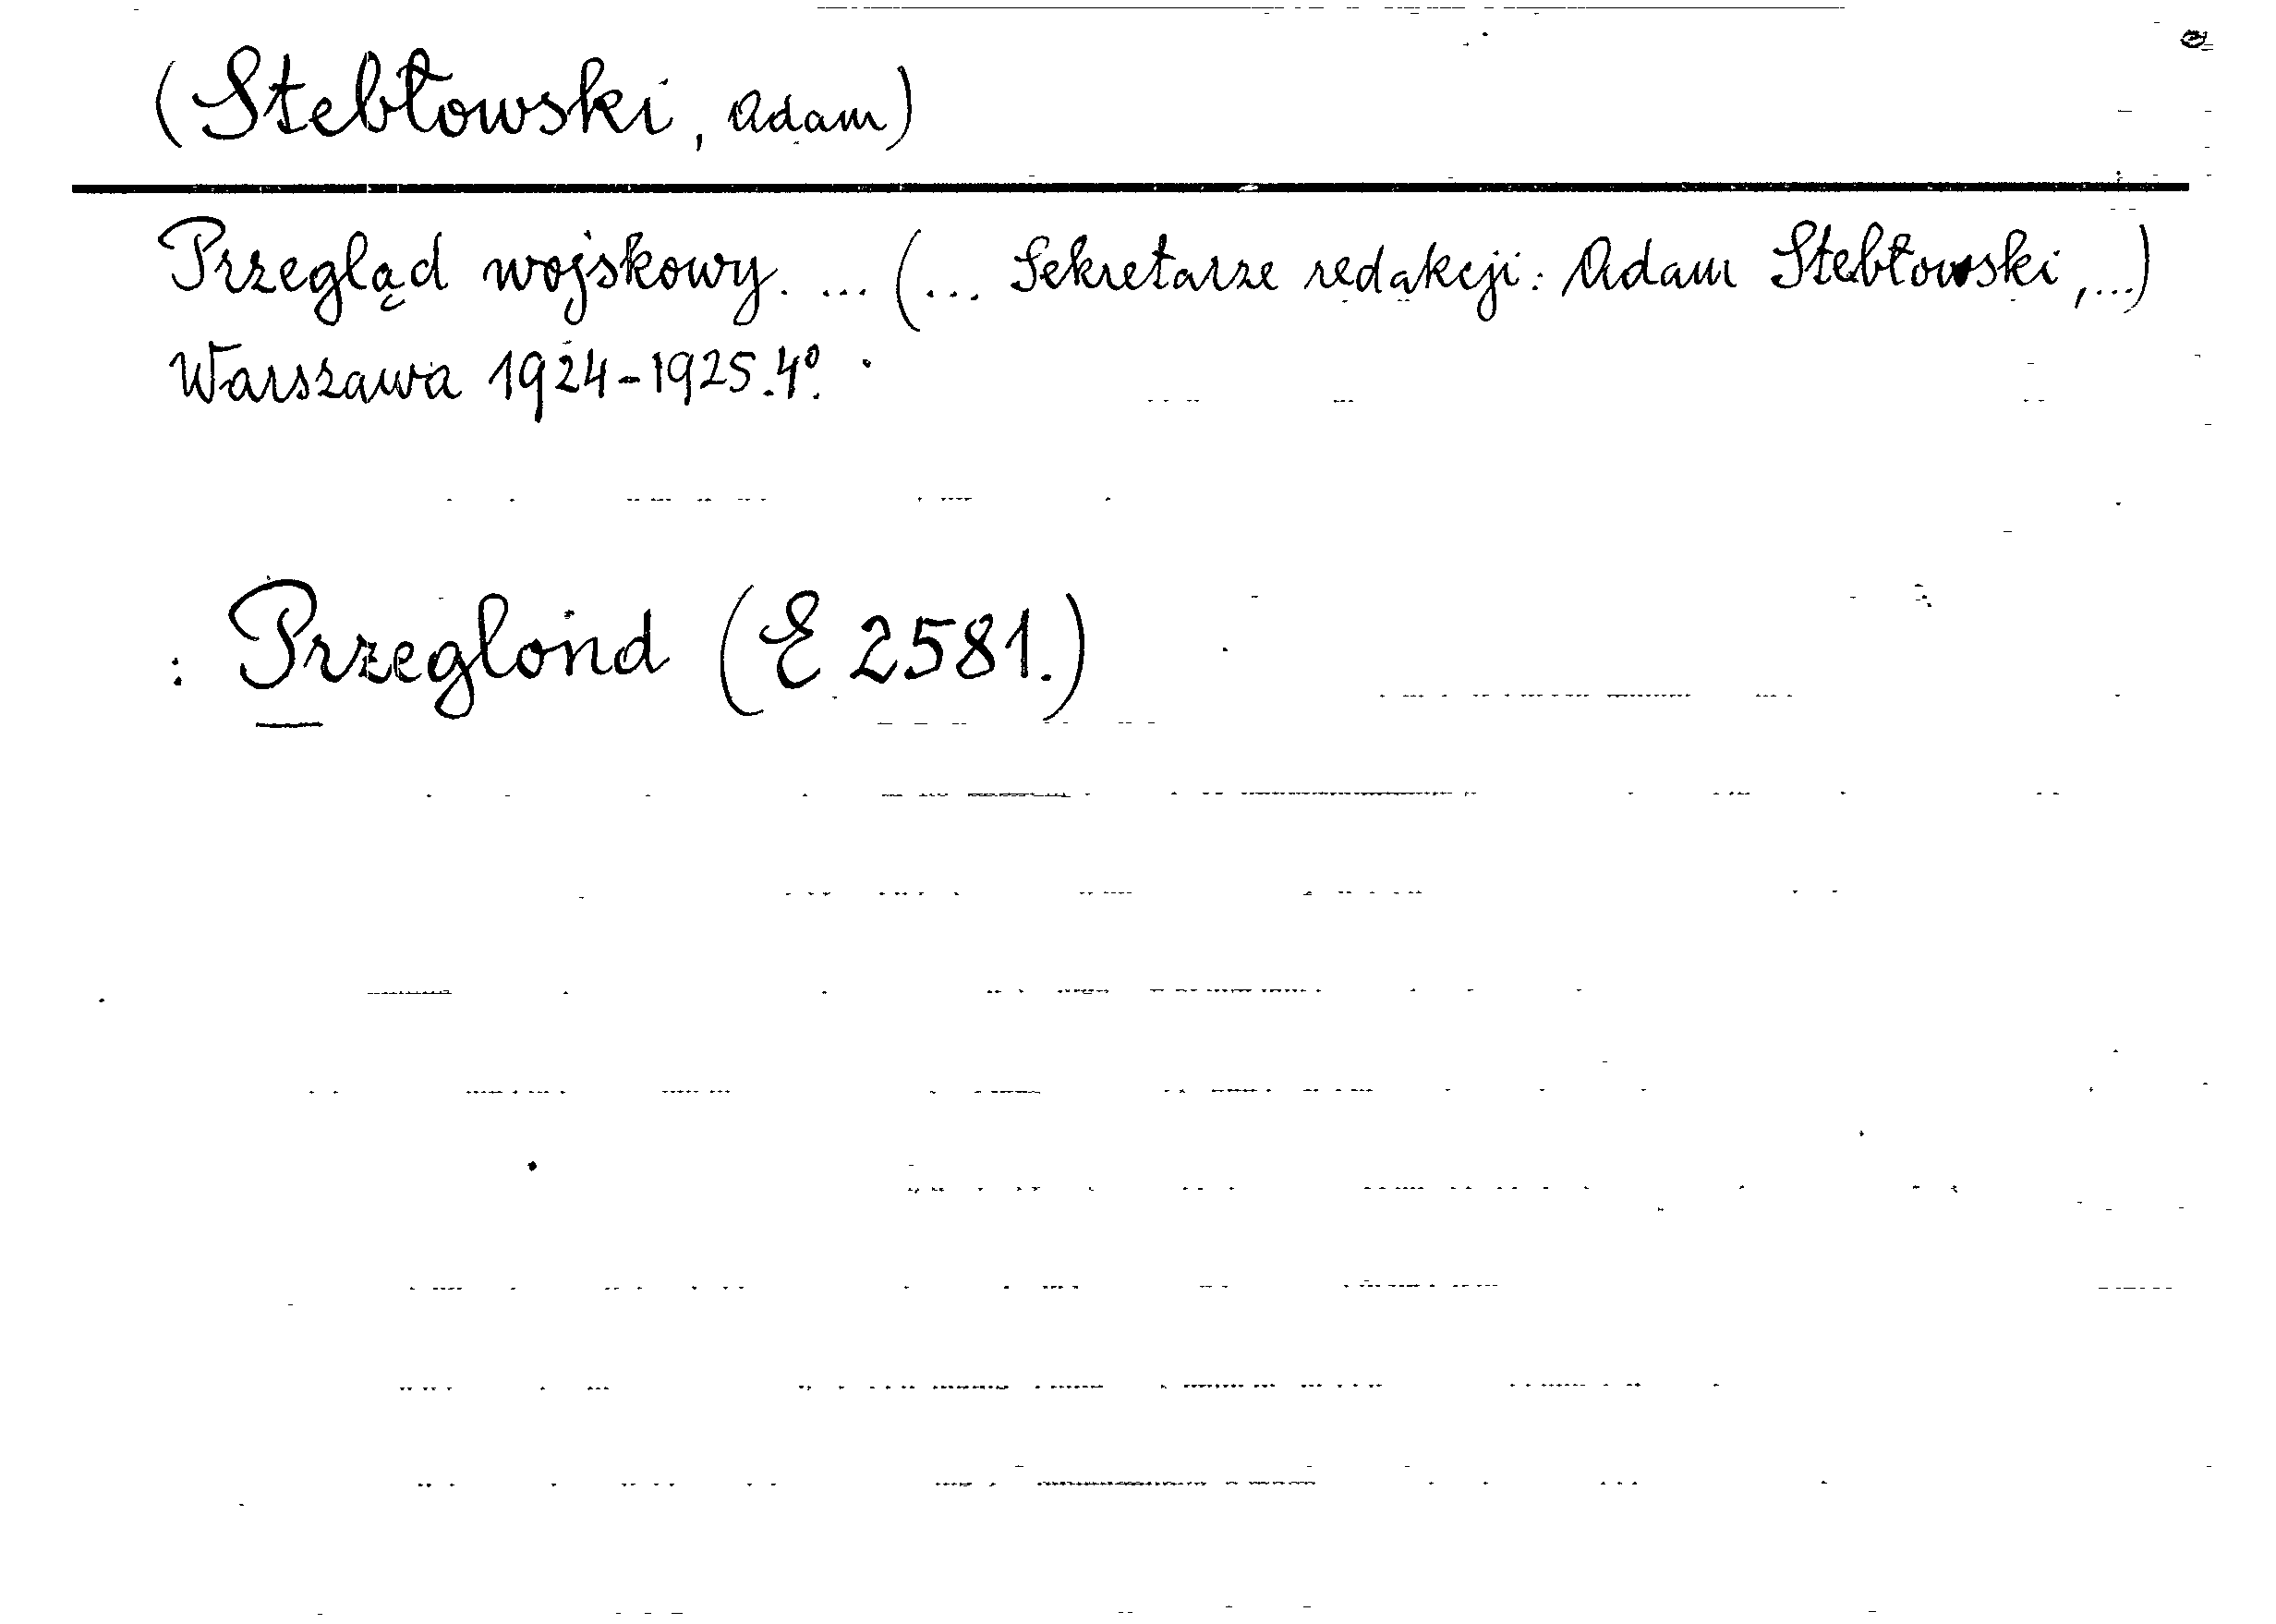 (Stebłowski, Adam)
Przegląd wojskowy. ... (... Sekretarze redakcji: Adam Stebłowski, ...)
Warszawa 1924-1925. 4º.
: Przeglond (E 2581.)